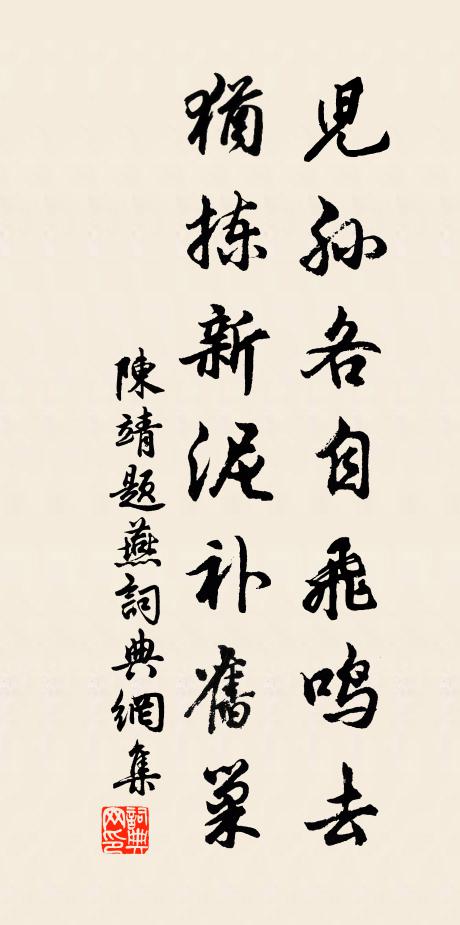 兒孫各自飛鳴去
猶揀新泥补舊巢
陳靖題燕詞典網集
詞典网印